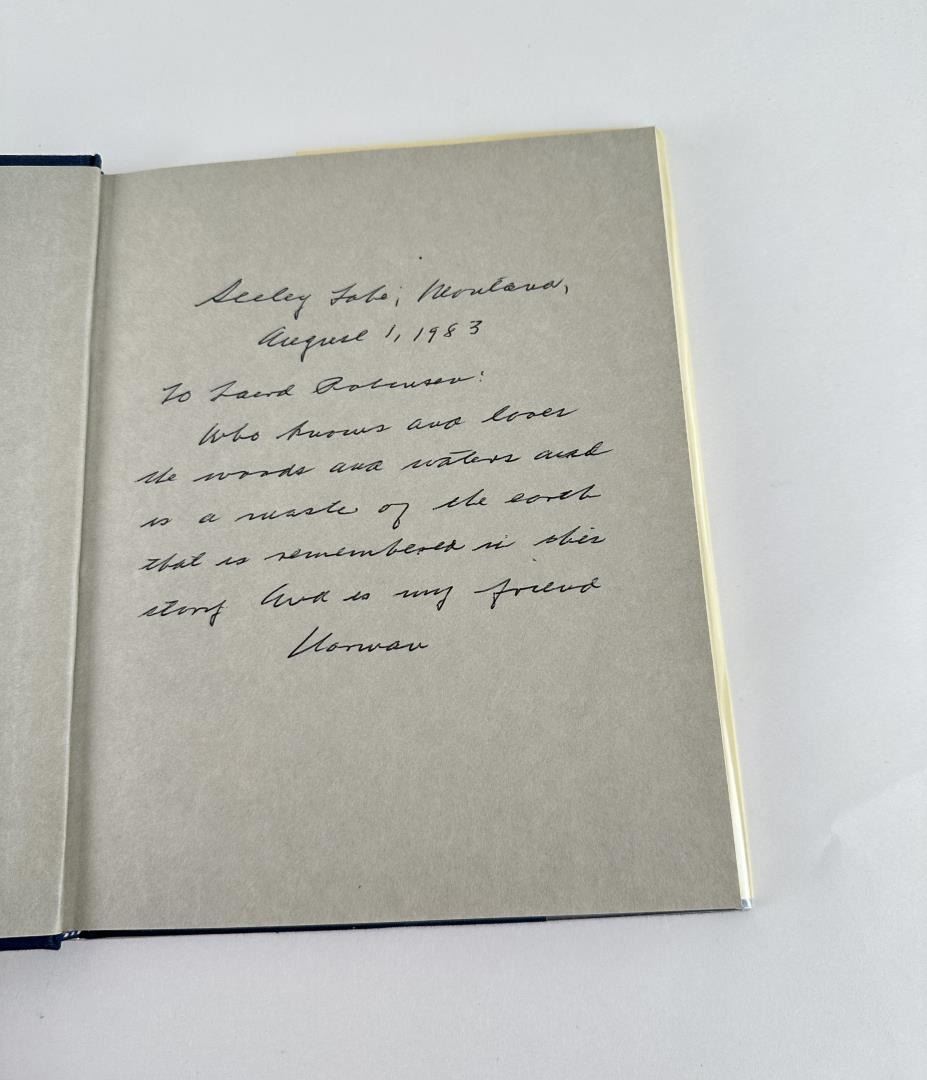 Seeley Lake, Montana,
August 1, 1983
To Laird Robinson:
Who knows and loves
the woods and waters and
is a master of the earth
that is remembered in this
story And is my friend
Norman